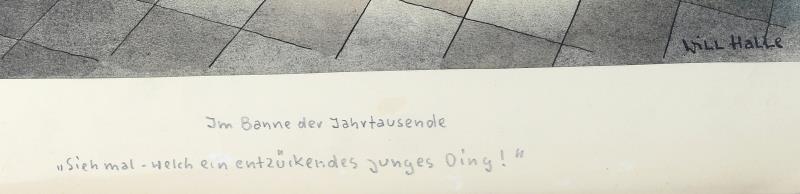 Will Halle
Im Banne der Jahrtausende
„Sieh mal - welch ein entzückendes junges Ding!“